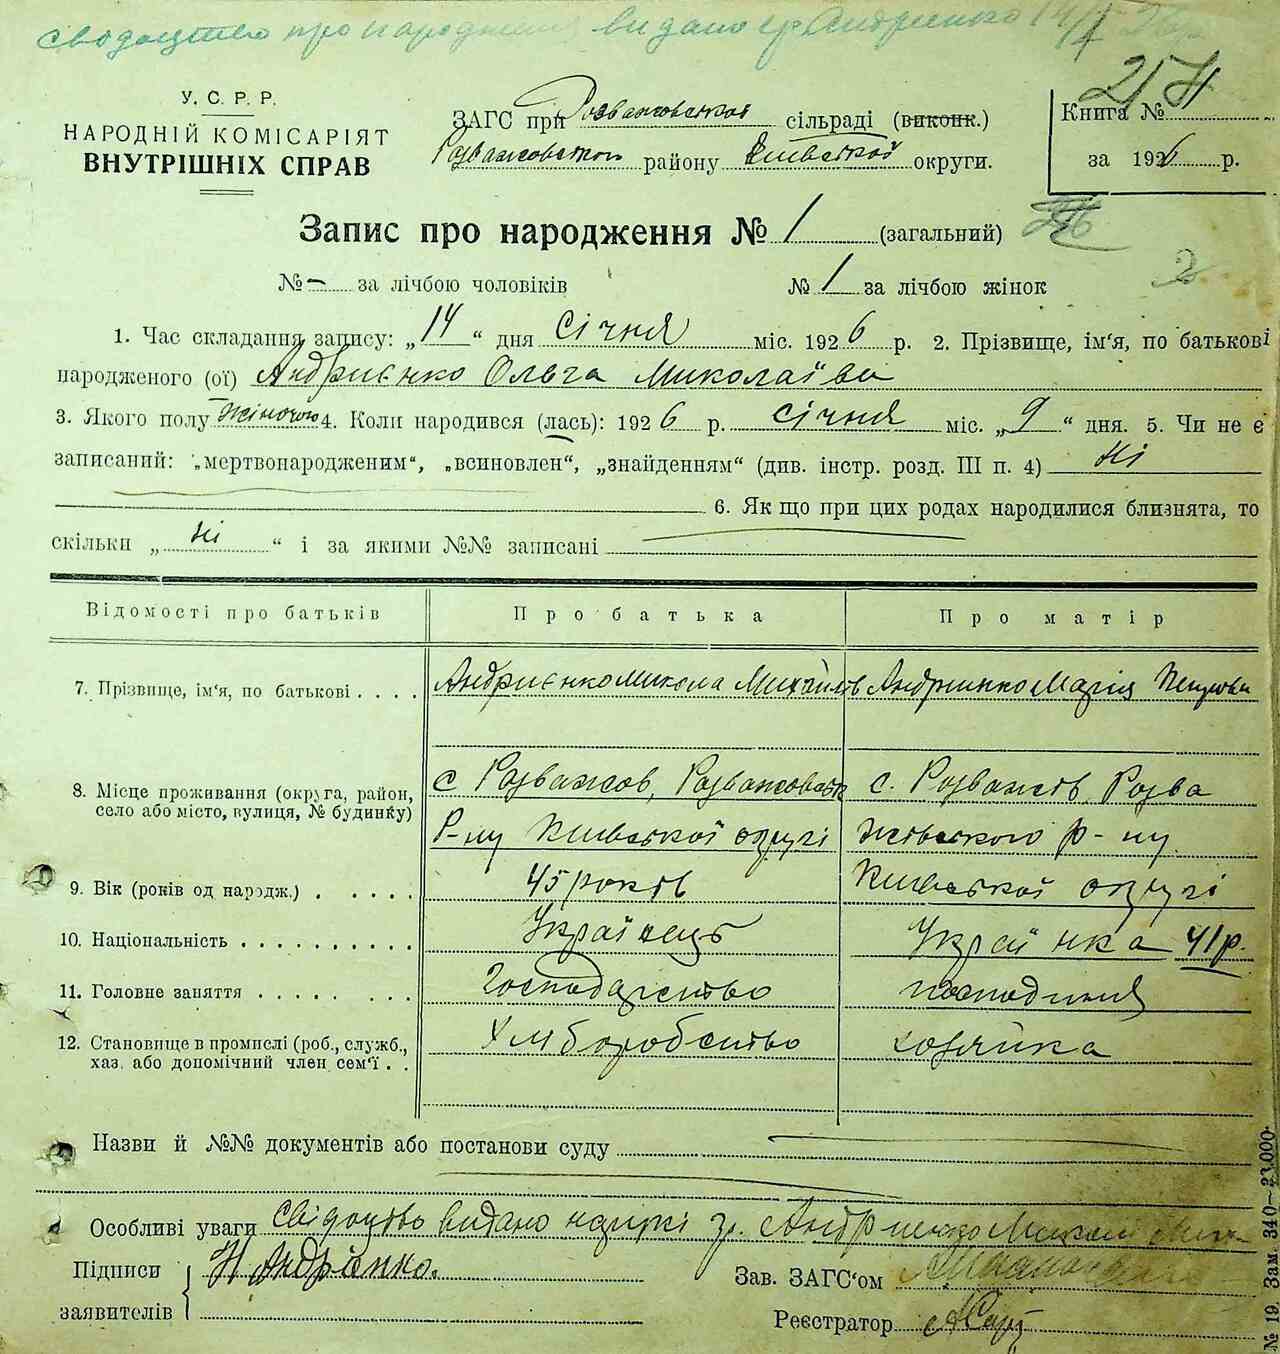 сводоцтво про народження видано гр. Андриенко 14/I 26 р.
У. С. Р. Р.
НАРОДНІЙ КОМІСАРІЯТ
ВНУТРІШНІХ СПРАВ
ЗАГС при Розважовської сільраді (виконк.)
Розважовського району Київської округи.
Книга №
за 1926 р.
Запис про народження № 1 (загальний)
№ – за лічбою чоловіків № 1 за лічбою жінок
2
1. Час складання запису: „14“ дня Січня міс. 1926 р. 2. Прізвище, ім‘я, по батькові
народженого (ої) Андриєнко Ольга Миколаївн
3. Якого полу Жіночого 4. Коли народився (лась): 1926 р. січня міс. „9“ дня. 5. Чи не є
записаний: „мертвонародженим“, „всиновлен“, „знайденням“ (див. інстр. розд. III п. 4) Ні
6. Як що при цих родах народилися близнята, то
скільки „ні“ і за якими №№ записані
Відомості про батьків Про батька Про матір
7. Прізвище, ім‘я, по батькові . . . . Андриєнко Микола Михайлів Андриєнко Марія Петровн
8. Місце проживання (округа, район, село або місто, вулиця, № будинку)
с Розважов, Розважовськ
Р-ну Київської округі
с. Розважів, Розва
жівського р-ну
Київської округі
9. Вік (років од народж.) . . . . . 45 років
10. Національність . . . . . . . . . . Українець Українка 41 р.
11. Головне заняття . . . . . . . . Господарство господиня
12. Становище в промислі (роб., служб., хаз. або допомічний член сем‘ї . . Хліборобство хозяйка
Назви й №№ документів або постанови суду
Особливі уваги свідоцтво видано на руки гр. Андриенко Миколі
Підписи
заявителів
Н Андріенко.
Зав. ЗАГС‘ом
Реєстратор
№ 19. Зам. 340—23.000.